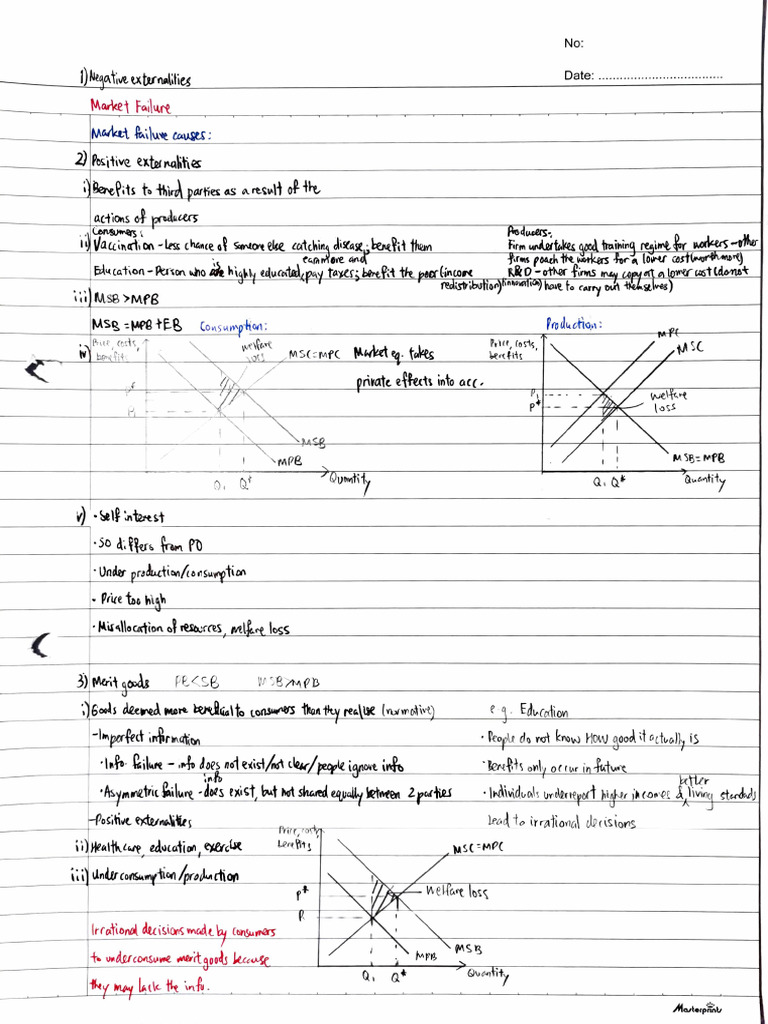 No:
Date: ..................................
1) Negative externalities
Market Failure
Market failure causes:
2) Positive externalities
i) Benefits to third parties as a result of the
actions of producers
Consumers:
ii) Vaccination - less chance of someone else catching disease; benefit them
earn more and
Education - Person who is highly educated, pay taxes; benefit the poor (income
redistribution)
Producers:
Firm undertakes good training regime for workers - other
firms poach the workers for a lower cost (worth more)
R&D - other firms may copy at a lower cost (do not
(innovation) have to carry out themselves)
iii) MSB>MPB
MSB = MPB + EB
Consumption:
Production:
iv) Price, costs,
benefits
welfare
loss
MSC=MPC
P*
P1
MSB
MPB
Q1 Q*
Quantity
Market eq. takes
private effects into acc.
Price, costs,
benefits
MPC
MSC
P1
P*
welfare
loss
MSB=MPB
Q1 Q*
Quantity
v) • Self interest
• SO differs from PO
• Under production/consumption
• Price too high
• Misallocation of resources, welfare loss
3) Merit goods PB<SB MSB>MPB
i) Goods deemed more beneficial to consumers than they realise (normative)
- Imperfect information
• Info. failure - info does not exist/not clear/people ignore info
info
• Asymmetric failure - does exist, but not shared equally between 2 parties
- Positive externalities
e.g. Education
• People do not know HOW good it actually is
• Benefits only occur in future
better
• Individuals underreport higher incomes & living standards
Lead to irrational decisions
ii) Healthcare, education, exercise
iii) Underconsumption/production
Price, costs,
benefits
MSC=MPC
P*
P1
Welfare loss
MSB
MPB
Q1 Q*
Quantity
Irrational decisions made by consumers
to underconsume merit goods because
they may lack the info.
Masterprint